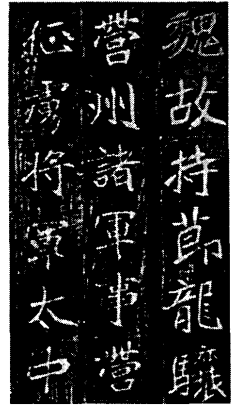 魏故持節龍驤
營州諸軍事營
征虜將軍太中